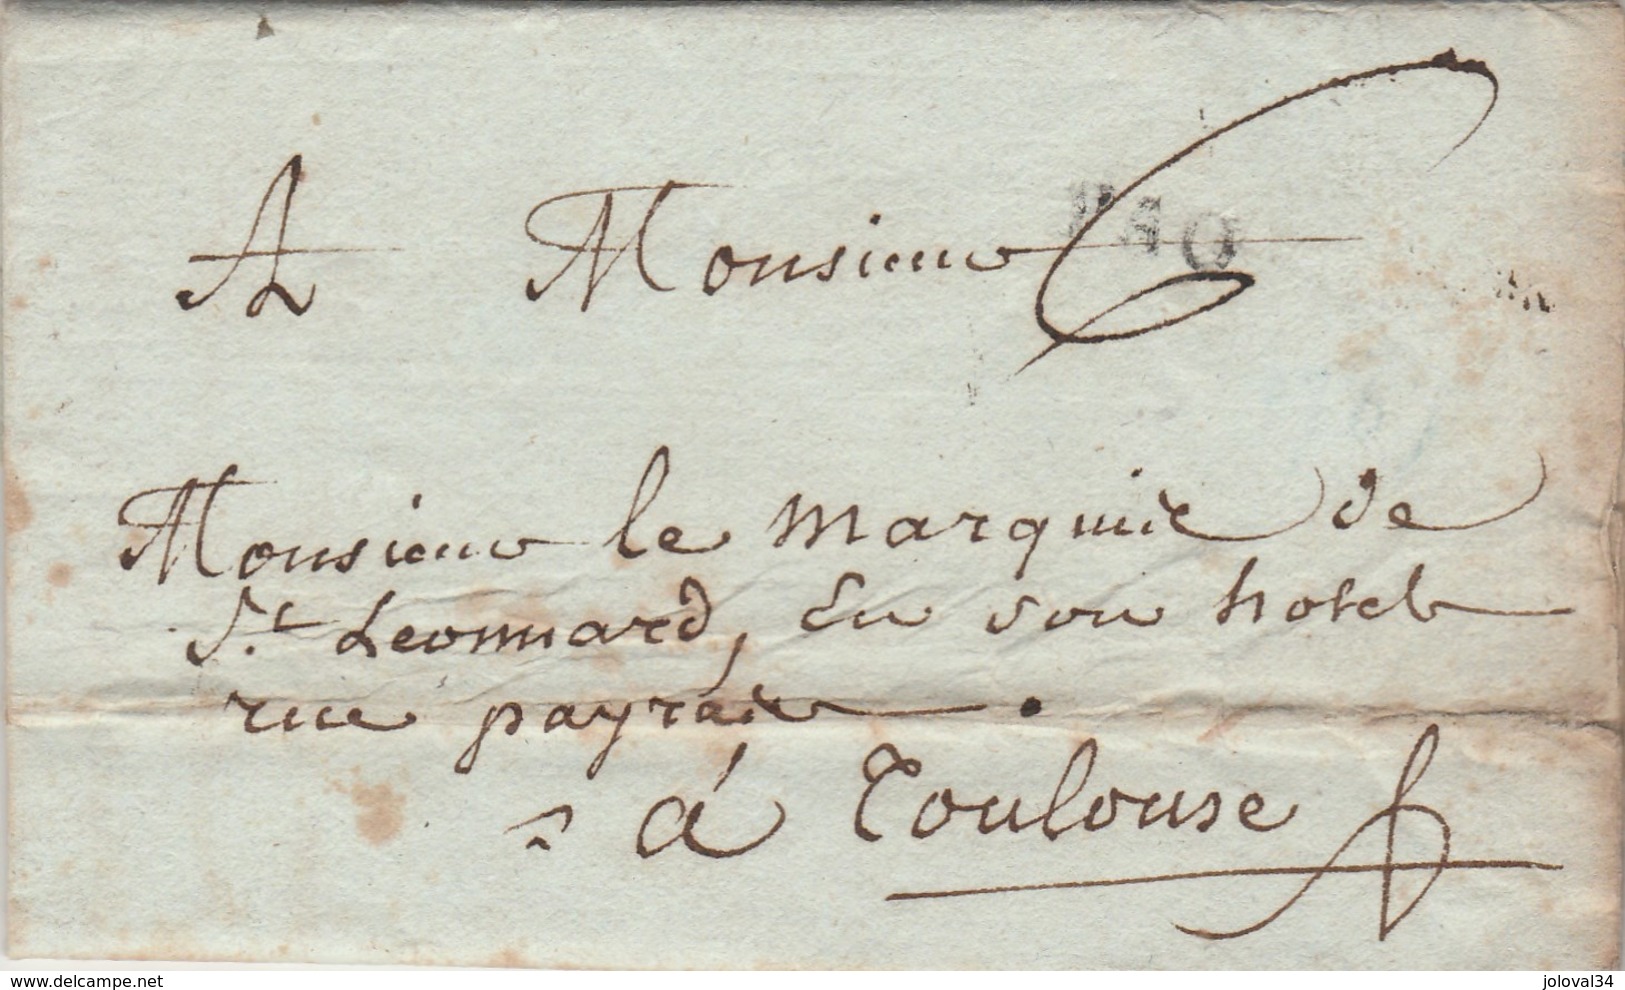 A Monsieur
Monsieur le marquis de
St. Leonnard, en son hotel
rue payras
à Toulouse
www.delcampe.net
joloval34